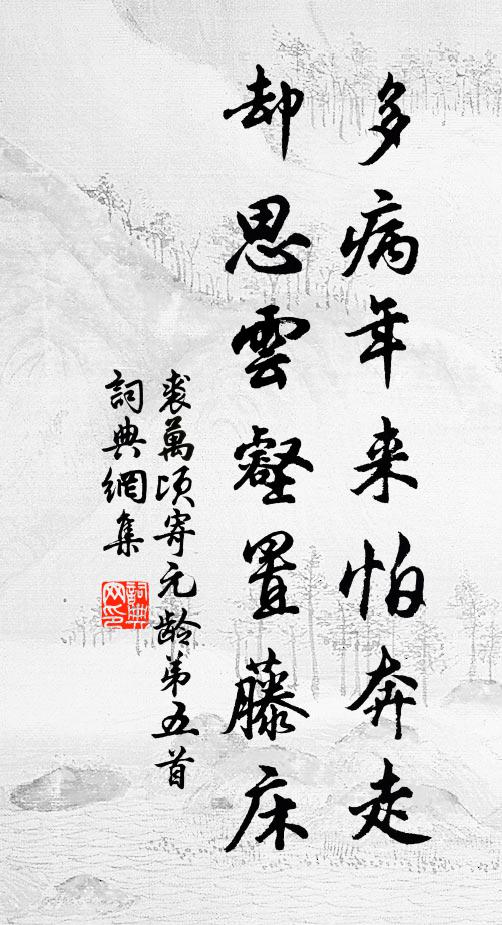 多病年来怕奔走
却思雲壑置藤床
裘萬頃寄元龄第五首
詞典網集
詞典网印